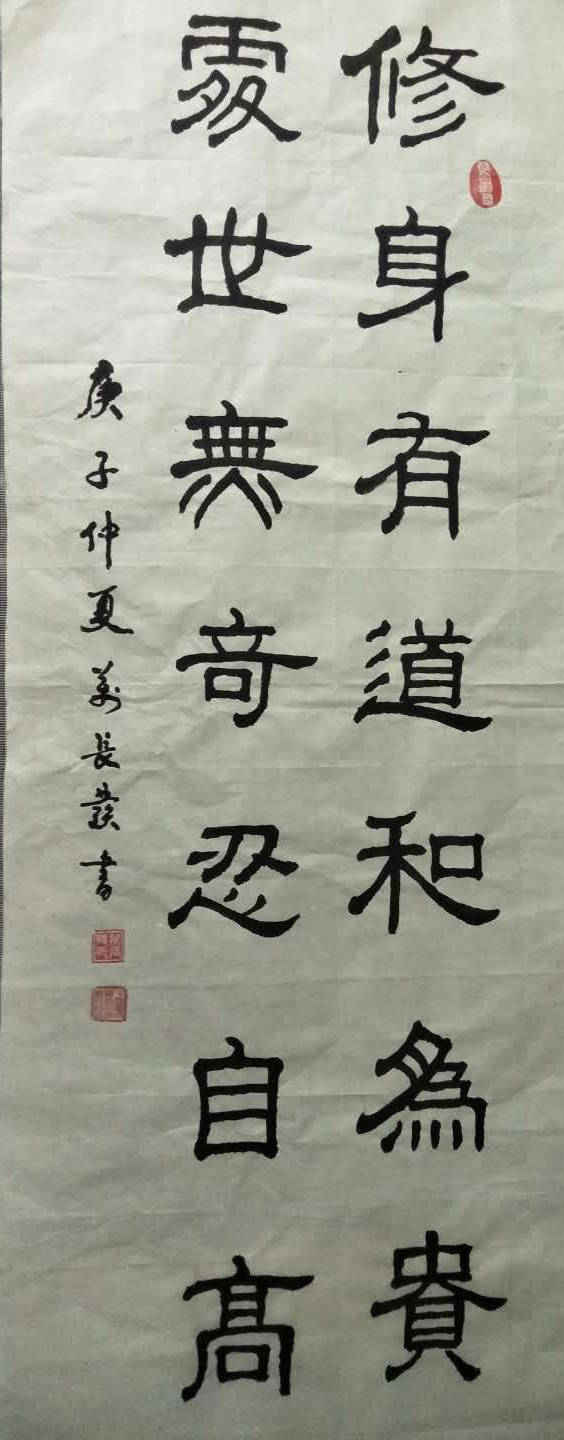 修身有道和為貴
處世無奇忍自高
庚子仲夏萬長發書